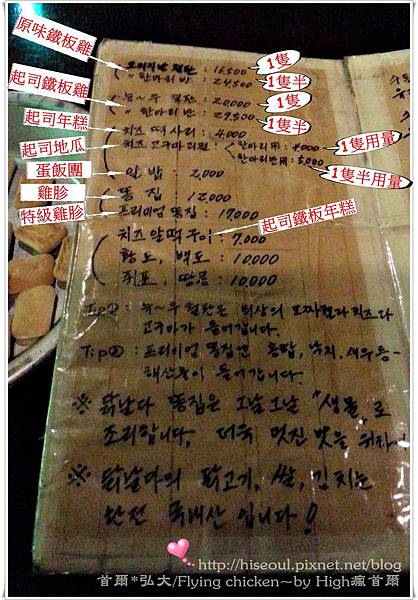 原味鐵板雞 오리지날 철판 : 16,500 1隻
한마리반 : 24,500 1隻半
起司鐵板雞 뉴~우 철판 : 20,000 1隻
한마리반 : 29,500 1隻半
起司年糕 치즈 떡사리 : 4,000
起司地瓜 치즈 고구마리필 : 한마리用 : 4000 1隻用量
한마리반用 : 5,000 1隻半用量
蛋飯團 알밥 : 2,000
雞胗 똥집 : 12,000
特級雞胗 프리미엄 똥집 : 17,000
起司鐵板年糕
치즈알떡구이 : 7,000
황도, 백도 : 10,000
쥐포, 땅콩 : 10,000
Tip① : 뉴~우 철판은 치즈다
고구마가 들어갑니다.
Tip② : 프리미엄 똥집엔 홍합, 낙지, 새우등~
해산물이 들어갑니다.
※ 닭날다 똥집은 그날그날 "생물"로
조리합니다, 더욱 멋진 맛을 위하~
※ 닭날다의 닭고기, 쌀, 김치는
완전 국내산 입니다!
http://hiseoul.pixnet.net/blog
首爾*弘大/Flying chicken~by High瘋首爾